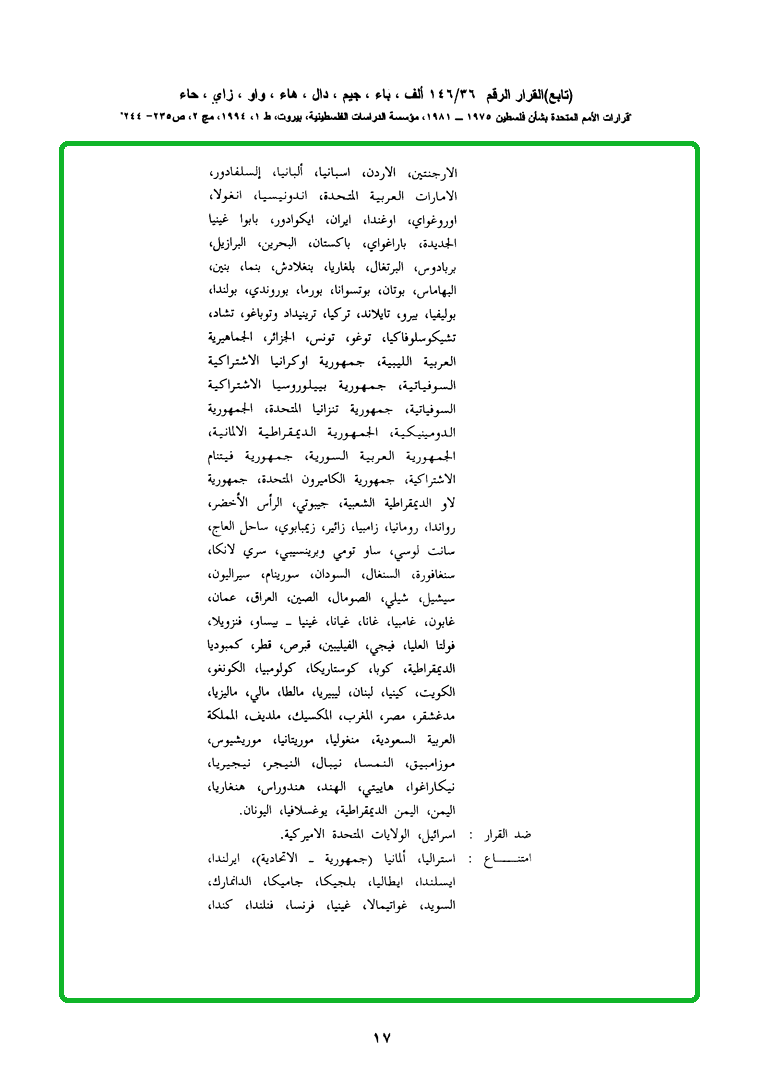 (تابع)القرار الرقم ١٤٦/٣٦ ألف ، باء ، جيم ، دال ، هاء ، واو ، زاي ، حاء
"قرارات الأمم المتحدة بشأن فلسطين ١٩٧٥ ــ ١٩٨١، مؤسسة الدراسات الفلسطينية، بيروت، ط ١، ١٩٩٤، مج ٢، ص٢٣٥- ٢٤٤"
الارجنتين، الاردن، اسبانيا، ألبانيا، إلسلفادور،
الامارات العربية المتحدة، اندونيسيا، انغولا،
اوروغواي، اوغندا، ايران، ايكوادور، بابوا غينيا
الجديدة، باراغواي، باكستان، البحرين، البرازيل،
بربادوس، البرتغال، بلغاريا، بنغلادش، بنما، بنين،
البهاماس، بوتان، بوتسوانا، بورما، بوروندي، بولندا،
بوليفيا، بيرو، تايلاند، تركيا، ترينيداد وتوباغو، تشاد،
تشيكوسلوفاكيا، توغو، تونس، الجزائر، الجماهيرية
العربية الليبية، جمهورية اوكرانيا الاشتراكية
السوفياتية، جمهورية بييلوروسيا الاشتراكية
السوفياتية، جمهورية تنزانيا المتحدة، الجمهورية
الدومينيكية، الجمهورية الديمقراطية الالمانية،
الجمهورية العربية السورية، جمهورية فيتنام
الاشتراكية، جمهورية الكاميرون المتحدة، جمهورية
لاو الديمقراطية الشعبية، جيبوتي، الرأس الأخضر،
رواندا، رومانيا، زامبيا، زائير، زيمبابوي، ساحل العاج،
سانت لوسي، ساو تومي وبرينسيبي، سري لانكا،
سنغافورة، السنغال، السودان، سورينام، سيراليون،
سيشيل، شيلي، الصومال، الصين، العراق، عمان،
غابون، غامبيا، غانا، غيانا، غينيا ــ بيساو، فنزويلا،
فولتا العليا، فيجي، الفيليبين، قبرص، قطر، كمبوديا
الديمقراطية، كوبا، كوستاريكا، كولومبيا، الكونغو،
الكويت، كينيا، لبنان، ليبيريا، مالطا، مالي، ماليزيا،
مدغشقر، مصر، المغرب، المكسيك، ملديف، المملكة
العربية السعودية، منغوليا، موريتانيا، موريشيوس،
موزامبيق، النمسا، نيبال، النيجر، نيجيريا،
نيكاراغوا، هاييتي، الهند، هندوراس، هنغاريا،
اليمن، اليمن الديمقراطية، يوغسلافيا، اليونان.
ضد القرار : اسرائيل، الولايات المتحدة الاميركية.
امتنـــــاع : استراليا، ألمانيا (جمهورية ــ الاتحادية)، ايرلندا،
ايسلندا، ايطاليا، بلجيكا، جاميكا، الدانمارك،
السويد، غواتيمالا، غينيا، فرنسا، فنلندا، كندا،
١٧